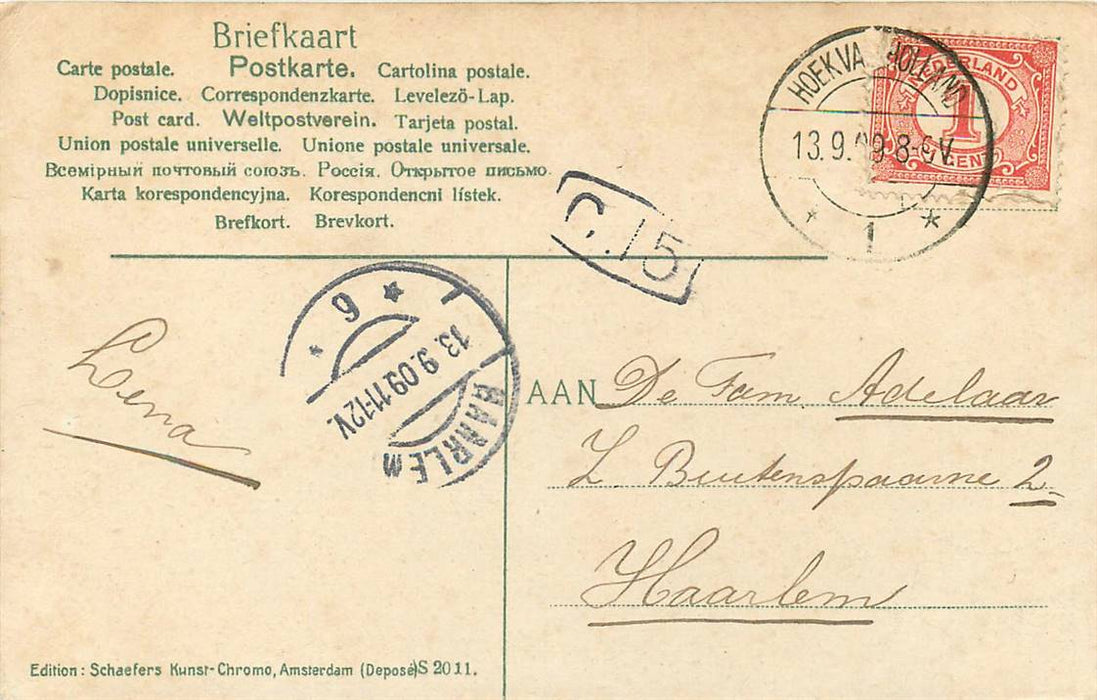 Briefkaart
Carte postale. Postkarte. Cartolina postale.
Dopisnice. Correspondenzkarte. Levelező-Lap.
Post card. Weltpostverein. Tarjeta postal.
Union postale universelle. Unione postale universale.
Всемірный почтовый союзъ. Россія. Открытое письмо.
Karta korespondencyjna. Korespondencni lístek.
Brefkort. Brevkort.
HOEK VA HOLLAND
13.9.09 8-9V.
1
NEDERLAND
1
CENT
15
9 * 1
13.9.09 11-12V.
HAARLEM
Lena
AAN De Fam Adelaar
Z. Buitenspaarne 2
Haarlem
Edition: Schaefers Kunst-Chromo, Amsterdam (Deposé) S 2011.